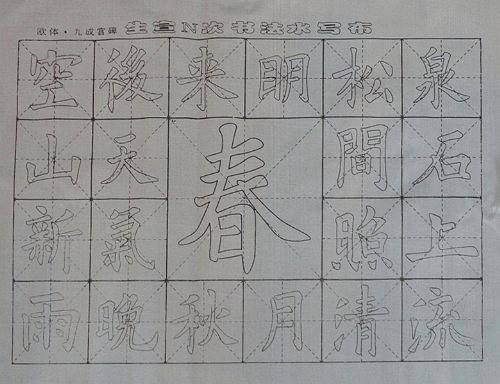 欧体·九成宫碑 生宣N次书法水写布
空山新雨
後天氣晚
来秋
春
明月
松間照清
泉石上流